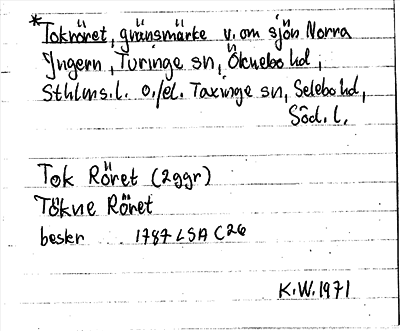 *Tokröret, gränsmärke v. om sjön Norra
Yngern, Turinge sn, Öknebo hd,
Sthlms. l. o./el. Taxinge sn, Selebo hd,
Söd. l.
Tok Röret (2ggr)
Tökne Röret
beskr 1787 LSA C26
K.W. 1971